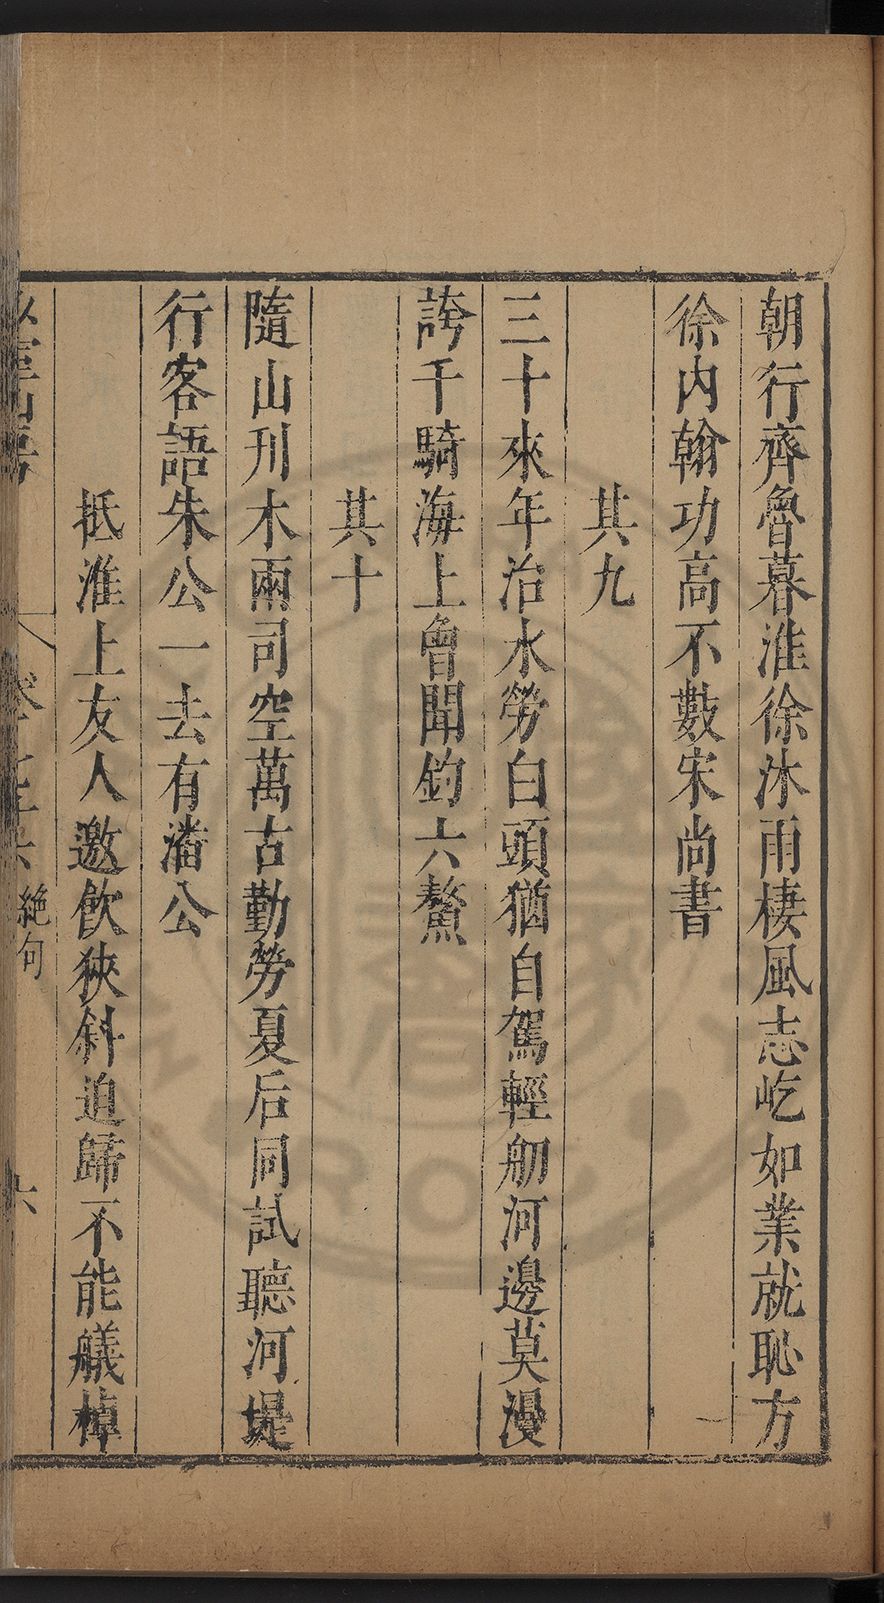 朝行齊魯暮淮徐沐雨棲風志屹如業就恥方
徐內翰功高不數宋尚書
其九
三十來年治水勞白頭猶自駕輕舠河邊莫漫
誇千騎海上曾聞釣六鰲
其十
隨山刋木兩司空萬古勤勞夏后同試聽河堤
行客語朱公一去有潘公
抵淮上友人邀飲狹斜迫歸不能艤棹
絕句
六